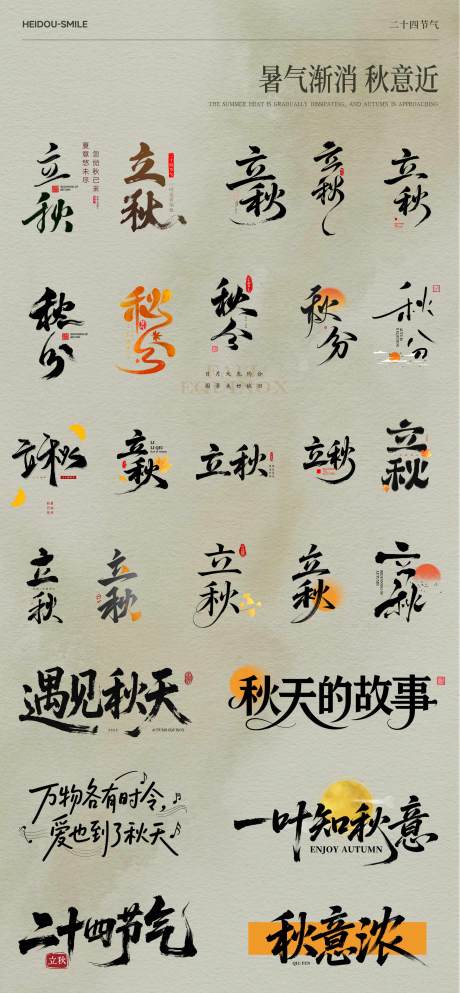 HEIDOU-SMILE
二十四节气
暑气渐消 秋意近
THE SUMMER HEAT IS GRADUALLY DISSIPATING, AND AUTUMN IS APPROACHING
立秋
忽觉秋已来
夏意悠未尽
立秋
立秋
立秋
立秋
秋分
秋分
秋分
秋分
秋分
EQUINOX
立秋
立秋
LI QIU
立秋
立秋
立秋
立秋
立秋
立秋
立秋
立秋
遇见秋天
AUTUMN EQUINOX
秋天的故事
万物各有时令，
爱也到了秋天
一叶知秋意
ENJOY AUTUMN
二十四节气
立秋
秋意浓
QIU FEN